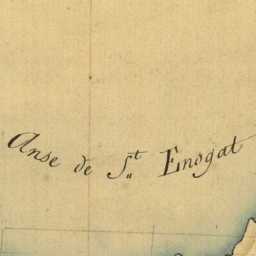 Anse de St Enogat